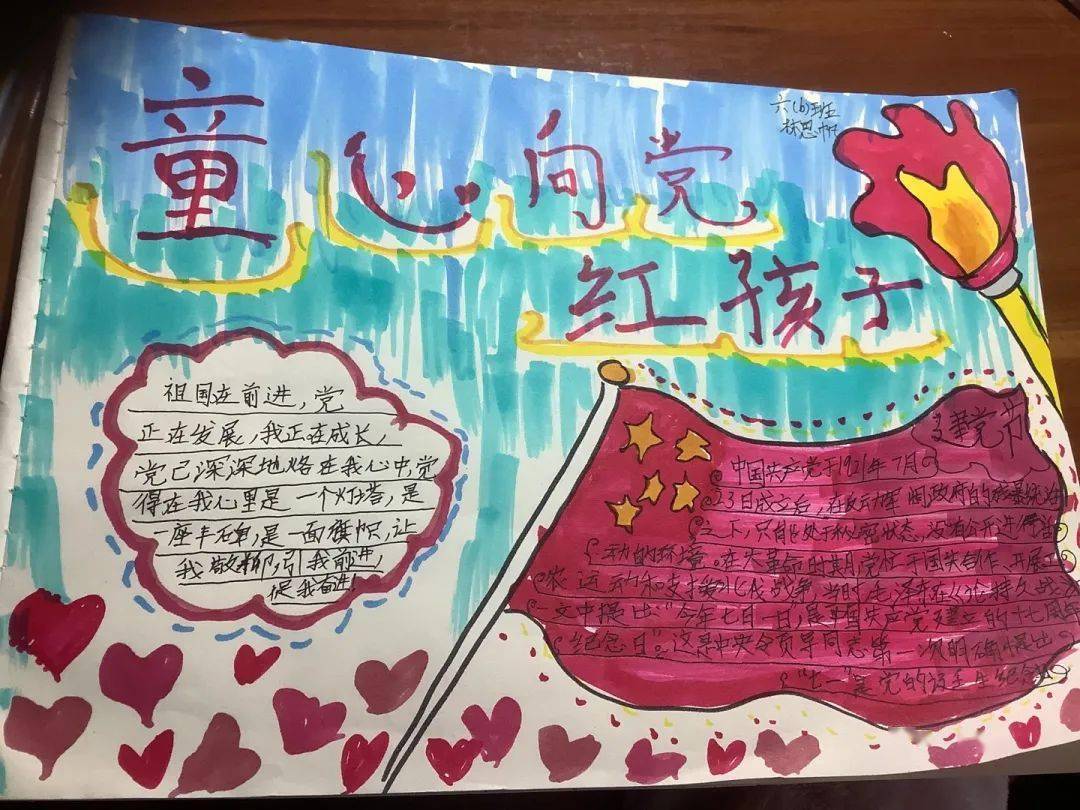 童心向党
六(6)班
林思
红孩子
祖国在前进，党
正在发展，我正在成长，
党已深深地烙在我心中党
得在我心里是一个灯塔，是
一座丰石卑，是一面旗帜，让
我敬柳，引我前进，
促我奋进！
建党节
中国共产党于1921年7月
23日成立后，在军阀政府的
之下，只能处于秘密状态，没有公开进行活
动的环境。在大革命时期党忙于国共合作、开展工
农运动和支援北伐战争，当时毛泽东在《论持久战》
一文中提出："今年七月一日，是中国共产党建立的十七周年
纪念日。"这是中央领导同志第一次明确提出
"七一"是党的诞生纪念